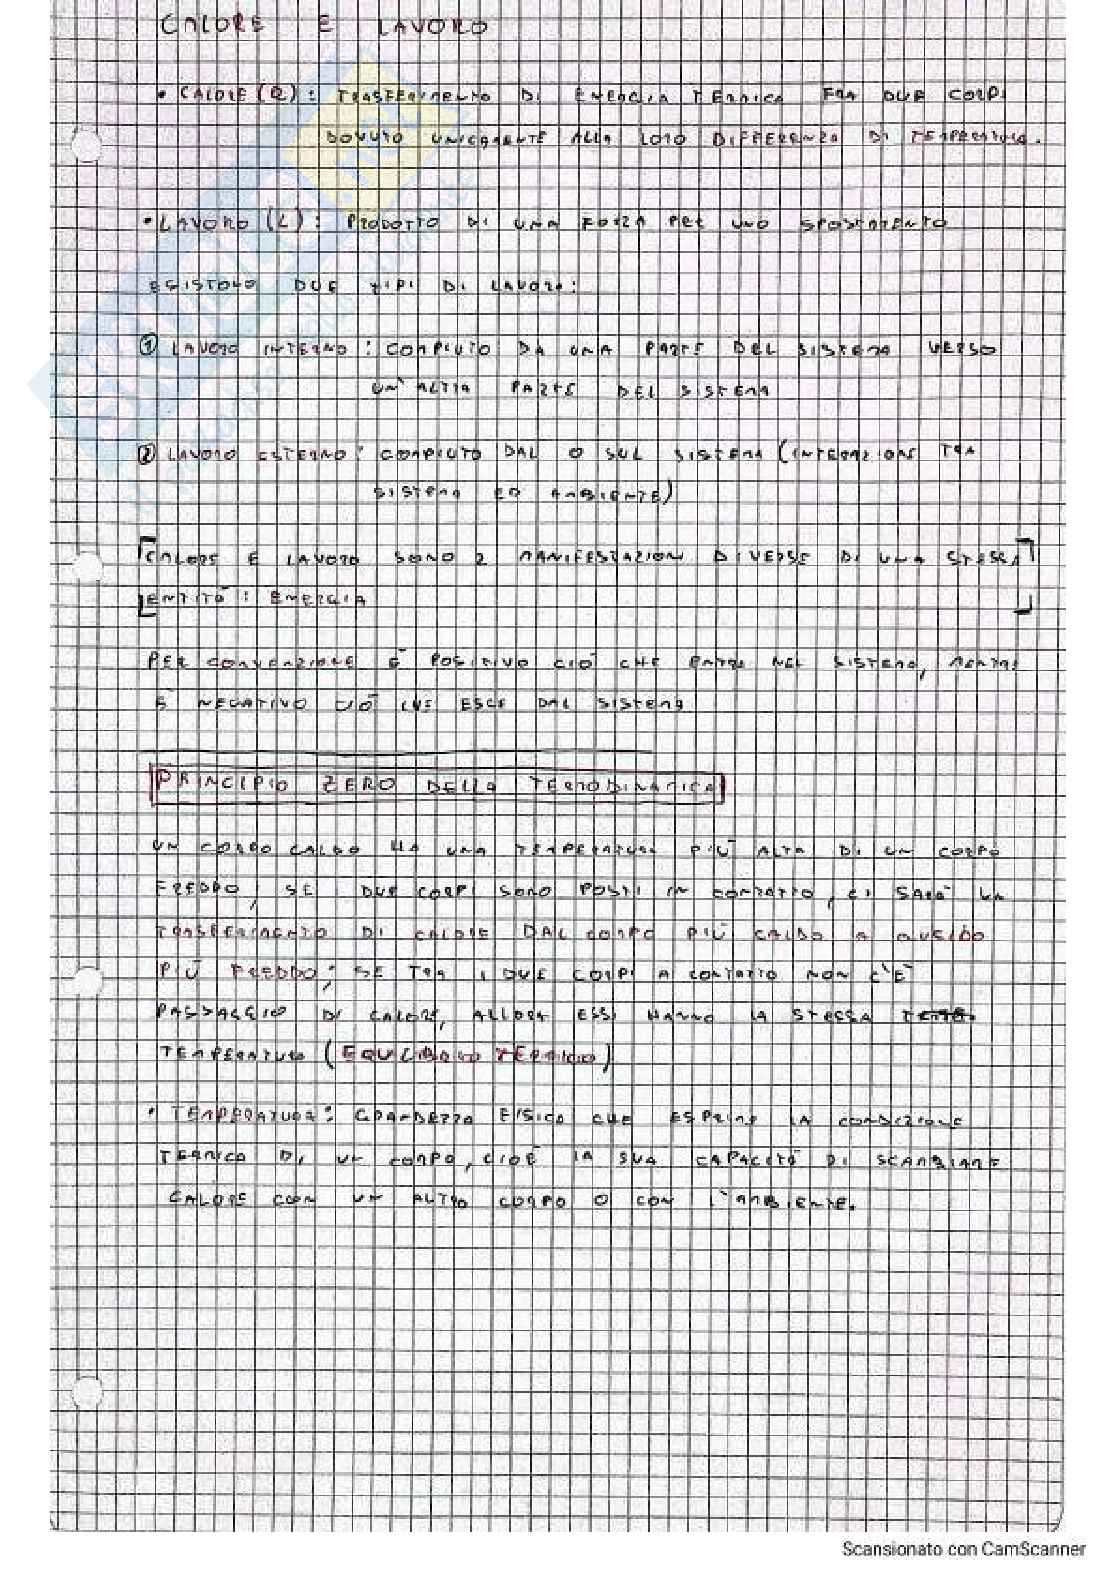 CALORE E LAVORO
• CALORE (Q): TRASFERIMENTO DI ENERGIA TERMICA FRA DUE CORPI
DOVUTO UNICAMENTE ALLA LORO DIFFERENZA DI TEMPERATURA.
• LAVORO (L): PRODOTTO DI UNA FORZA PER UNO SPOSTAMENTO
ESISTONO DUE TIPI DI LAVORO:
① LAVORO INTERNO: COMPIUTO DA UNA PARTE DEL SISTEMA VERSO
UN'ALTRA PARTE DEL SISTEMA
② LAVORO ESTERNO: COMPIUTO DAL O SUL SISTEMA (INTERAZIONE TRA
SISTEMA ED AMBIENTE)
[CALORE E LAVORO SONO 2 MANIFESTAZIONI DIVERSE DI UNA STESSA
ENTITÀ: ENERGIA]
PER CONVENZIONE È POSITIVO CIÒ CHE ENTRA NEL SISTEMA, MENTRE
È NEGATIVO CIÒ CHE ESCE DAL SISTEMA
PRINCIPIO ZERO DELLA TERMODINAMICA
UN CORPO CALDO HA UNA TEMPERATURA PIÙ ALTA DI UN CORPO
FREDDO, SE DUE CORPI SONO POSTI IN CONTATTO, CI SARÀ UN
TRASFERIMENTO DI CALORE DAL CORPO PIÙ CALDO A QUELLO
PIÙ FREDDO; SE TRA I DUE CORPI A CONTATTO NON C'È
PASSAGGIO DI CALORE, ALLORA ESSI HANNO LA STESSA
TEMPERATURA (EQUILIBRIO TERMICO)
• TEMPERATURA: GRANDEZZA FISICA CHE ESPRIME LA CONDIZIONE
TERMICA DI UN CORPO, CIOÈ LA SUA CAPACITÀ DI SCAMBIARE
CALORE CON UN ALTRO CORPO O CON L'AMBIENTE.
Scansionato con CamScanner